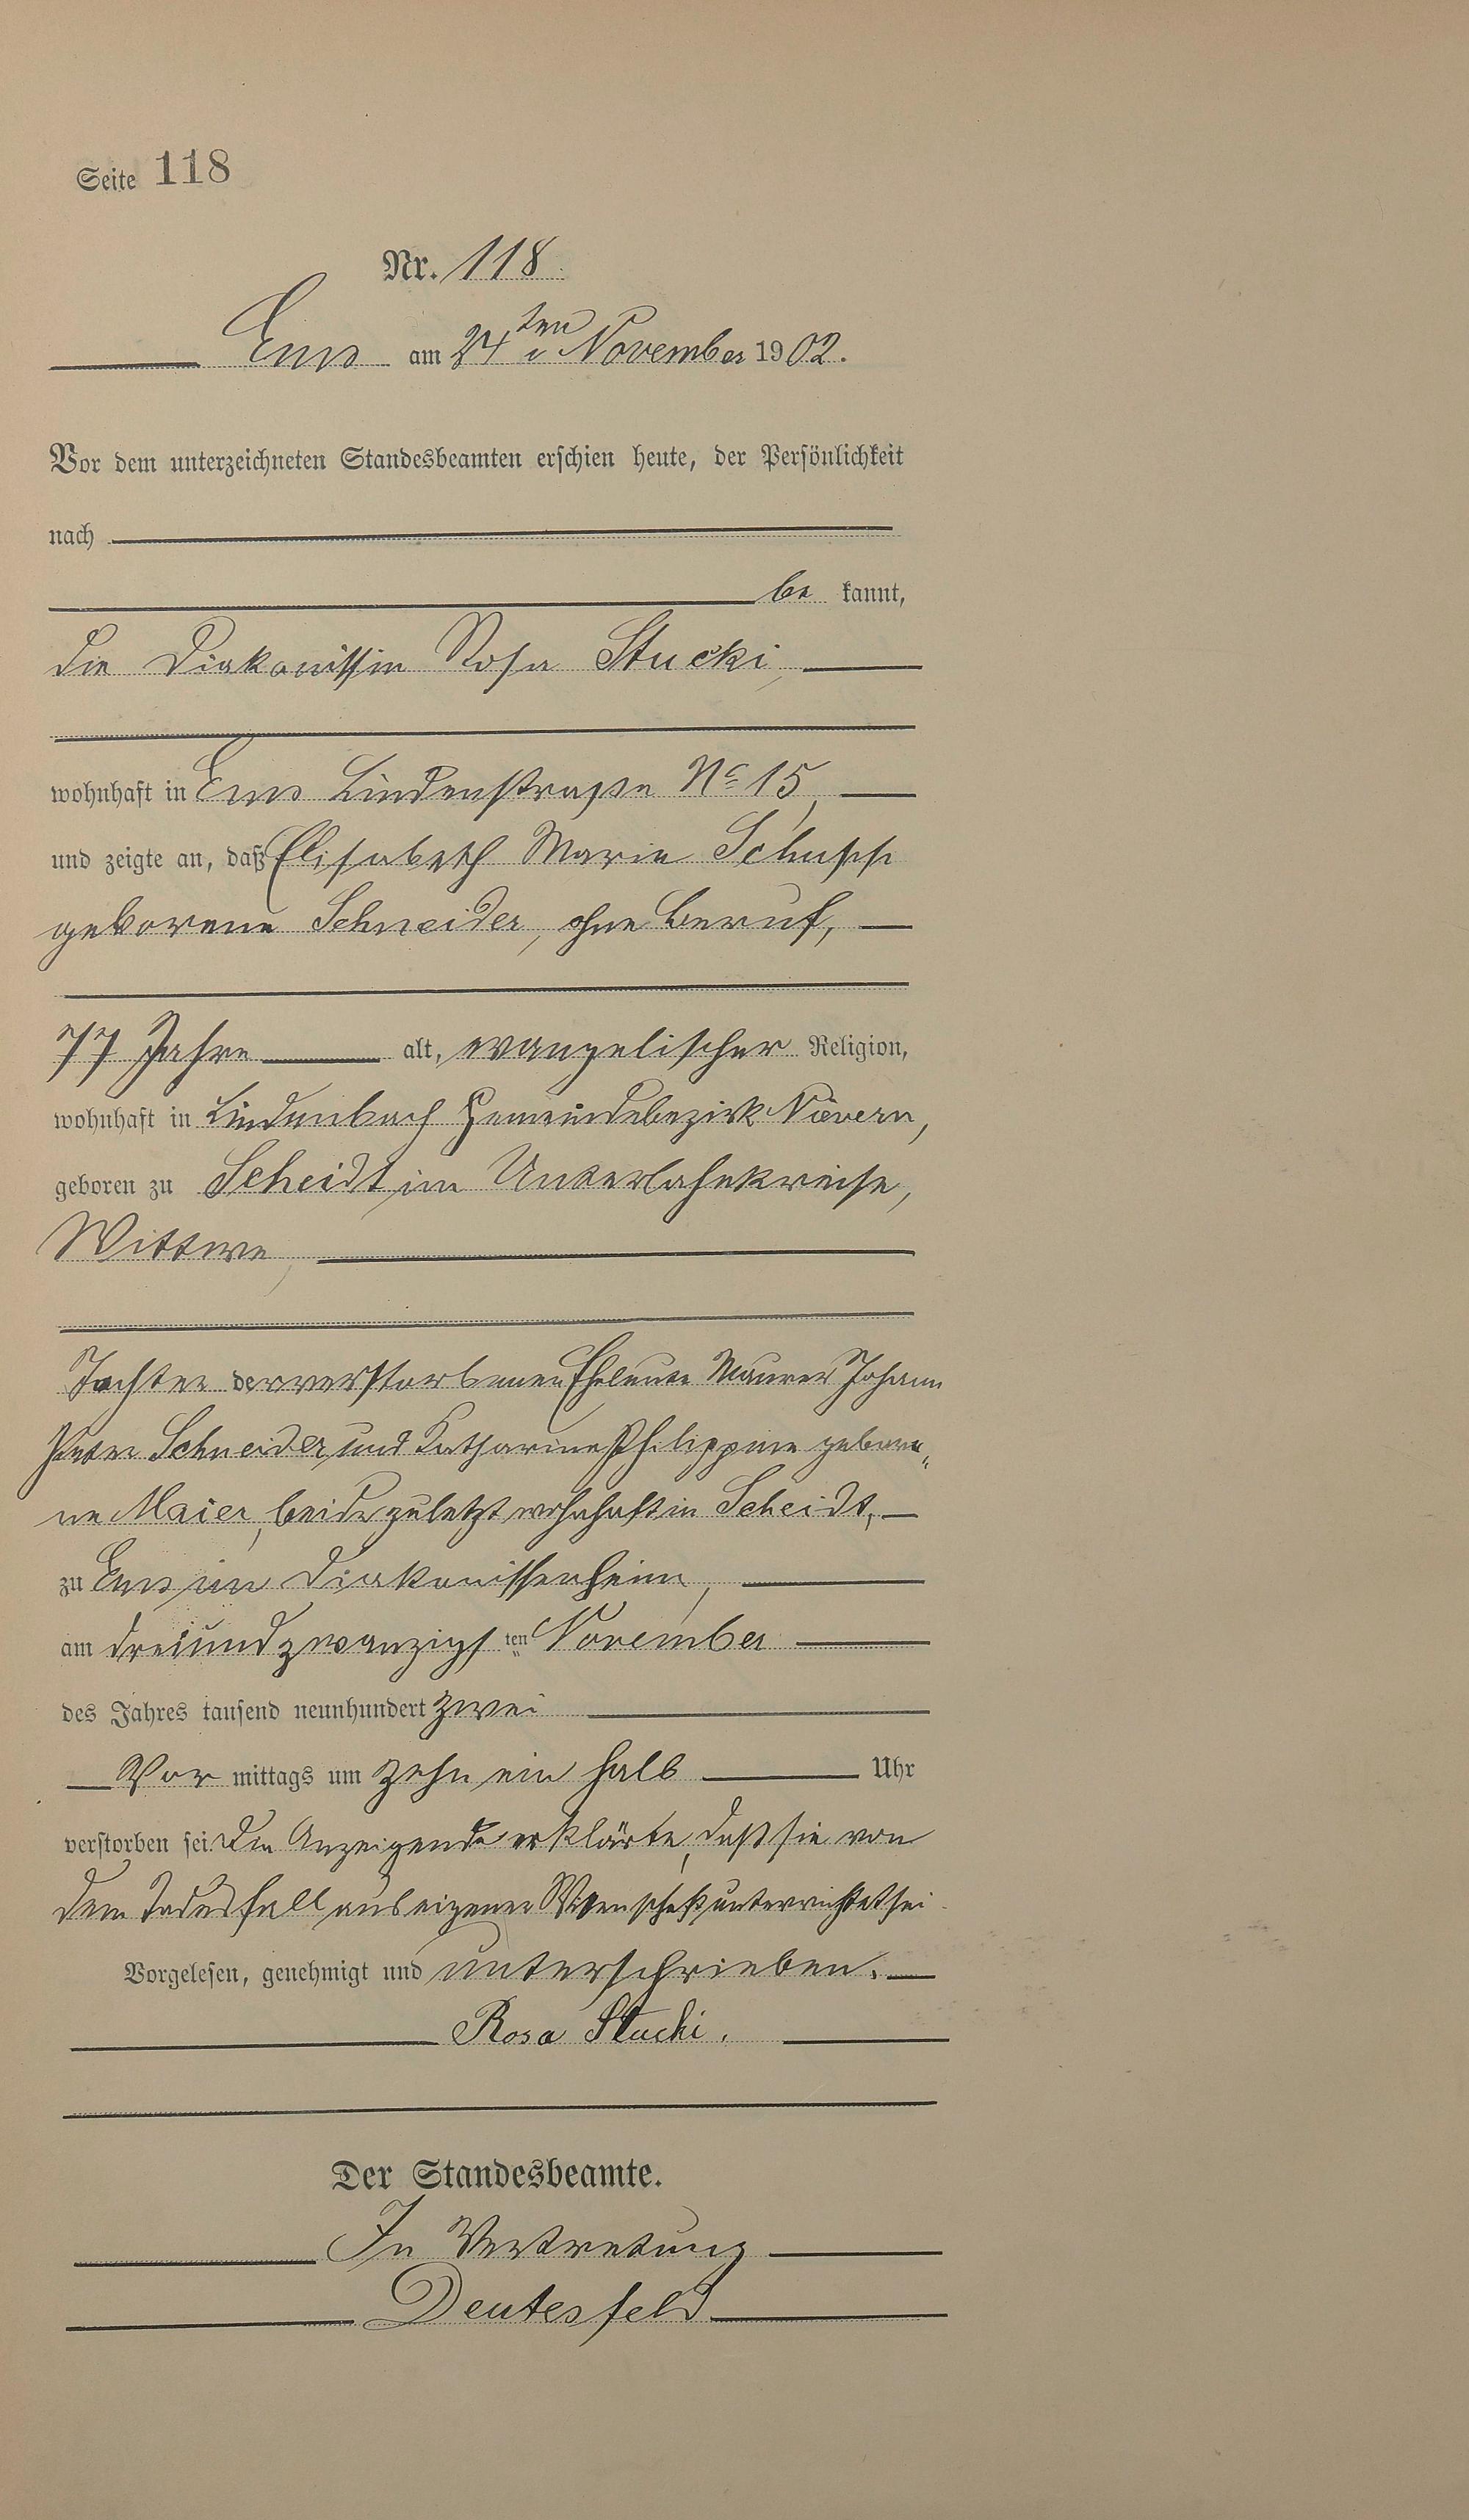 Seite 118
Nr. 118
Ems am 24ten November 1902.
Vor dem unterzeichneten Standesbeamten erschien heute, der Persönlichkeit
nach
be kannt,
die Diakonissin Rosa Stucki,
wohnhaft in Ems Lindenstrasse No 15,
und zeigte an, daß Elisabeth Marie Schupp
geborene Schneider, ohne Beruf,
77 Jahre alt, evangelischer Religion,
wohnhaft in Lindenbach Gemeindebezirk Nievern,
geboren zu Scheidt im Unterlahnkreise,
Wittwe,
Tochter der verstorbenen Eheleute Maurer Johann
Peter Schneider und Katharine Philippine gebore„
ne Maier, beide zuletzt wohnhaft in Scheidt,
zu Ems im Diakonissenheim,
am dreiundzwanzigsten November
des Jahres tausend neunhundert zwei
Vor mittags um zehn ein halb Uhr
verstorben sei. Die Anzeigende erklärte, daß sie von
dem Todesfall aus eigener Wissenschaft unterrichtet sei.
Vorgelesen, genehmigt und unterschrieben.
Rosa Stucki.
Der Standesbeamte.
In Vertretung
Deutesfeld